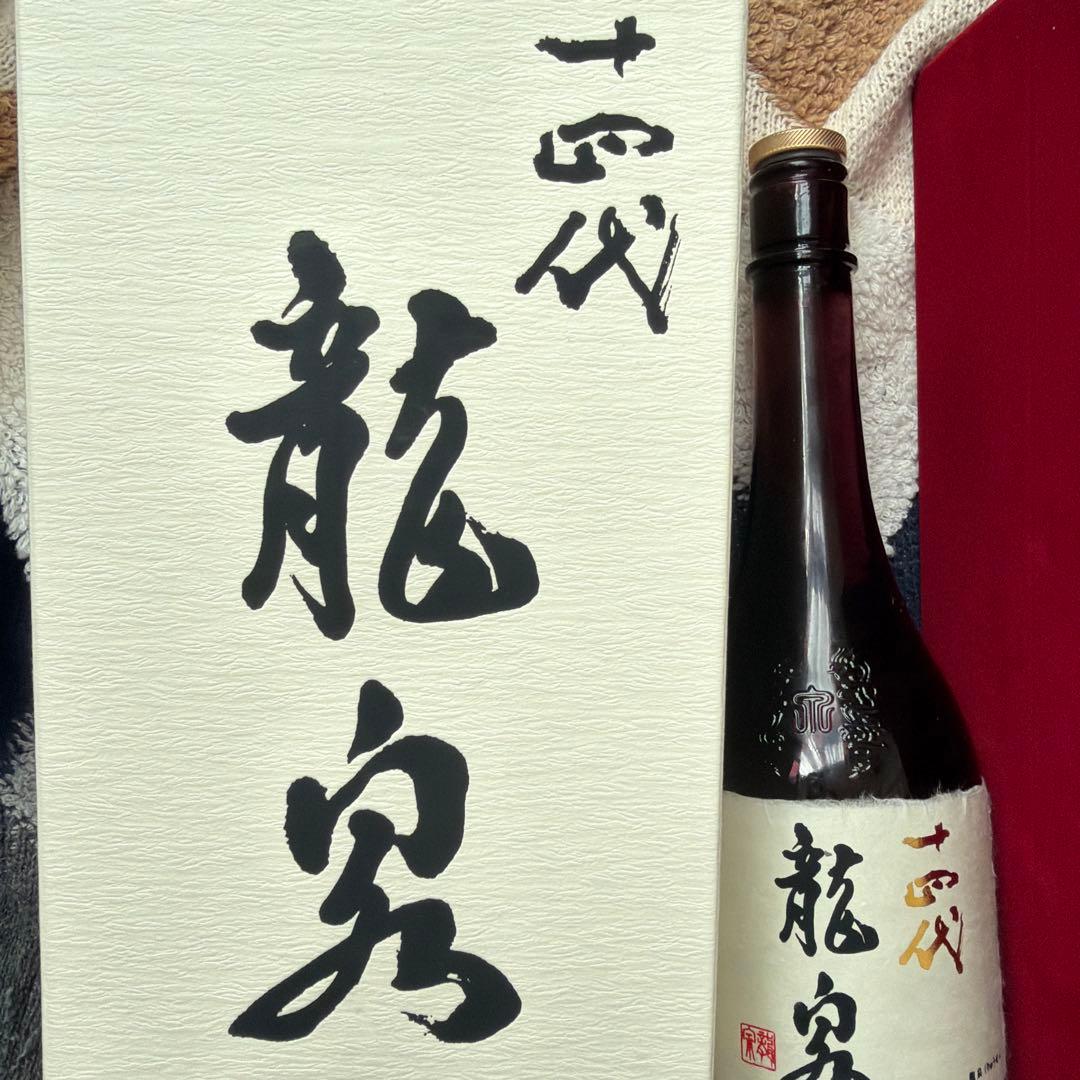 十四代
龍泉
十四代
龍泉
龍泉